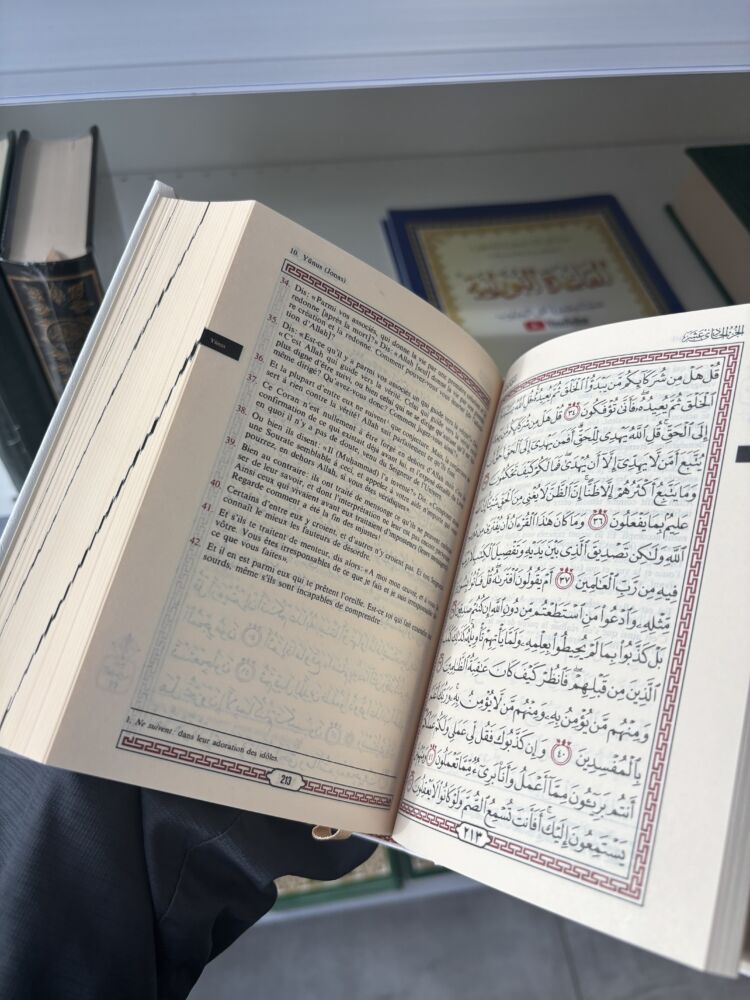 10. Yûnus (Jonas)
34. Dis: «Parmi vos associés, qui donne la vie par une première
redonne [après la mort]?» Dis: «Allah [seul] donne la vie par
re création et la redonne. Comment pouvez-vous vous
35. Dis: «Est-ce qu'il y a parmi vos associés un qui guide vers la
«C'est Allah qui guide vers la vérité. Celui qui guide vers la
plus digne d'être suivi, ou bien celui qui ne se dirige
même dirigé? Qu'avez-vous donc? Comment jugez-vous
36. Et la plupart d'entre eux ne suivent¹ que conjecture. Mais, la
sert à rien contre la vérité! Allah sait parfaitement ce qu'ils
37. Ce Coran n'est nullement à être forgé en dehors d'Allah mais
confirmation de ce qui existait déjà avant lui, et l'exposé
en quoi il n'y a pas de doute, venu du Seigneur de l'Univers.
38. Ou bien ils disent: «Il (Muhammad) l'a inventé?» Dis: «Composez donc
une Sourate semblable à ceci, et appelez à votre aide n'importe qui vous
pourrez, en dehors Allah, si vous êtes véridiques».
39. Bien au contraire: ils ont traité de mensonge ce qu'ils ne peuvent
ser de leur savoir, et dont l'interprétation ne leur est pas encore parvenue.
Ainsi ceux qui vivaient avant eux traitaient d'imposteurs (leurs messagers).
Regarde comment a été la fin des injustes!
40. Certains d'entre eux y croient, et d'autres n'y croient pas. Et ton Seigneur
connaît le mieux les fauteurs de désordre.
41. Et s'ils te traitent de menteur, dis alors: «A moi mon œuvre, et à vous la
vôtre. Vous êtes irresponsables de ce que je fais et je suis irresponsable de
ce que vous faites».
42. Et il en est parmi eux qui te prêtent l'oreille. Est-ce toi qui fait entendre les
sourds, même s'ils sont incapables de comprendre
1. Ne suivent: dans leur adoration des idôles.
213
Yûnus
الجزء الحادي عشر
قُلْ هَلْ مِن شُرَكَائِكُم مَّن يَبْدَؤُا الْخَلْقَ ثُمَّ يُعِيدُهُ قُلِ اللَّهُ
الْخَلْقَ ثُمَّ يُعِيدُهُ فَأَنَّى تُؤْفَكُونَ ٣٤ قُلْ هَلْ مِن
إِلَى الْحَقِّ قُلِ اللَّهُ يَهْدِي لِلْحَقِّ أَفَمَن يَهْدِي إِلَى
يُتَّبَعَ أَمَّن لَّا يَهِدِّي إِلَّا أَن يُهْدَى فَمَا لَكُمْ كَيْفَ تَحْكُمُونَ
وَمَا يَتَّبِعُ أَكْثَرُهُمْ إِلَّا ظَنًّا إِنَّ الظَّنَّ لَا يُغْنِي مِنَ الْحَقِّ شَيْئًا
عَلِيمٌ بِمَا يَفْعَلُونَ ٣٦ وَمَا كَانَ هَذَا الْقُرْآنُ أَن يُفْتَرَى
اللَّهِ وَلَكِن تَصْدِيقَ الَّذِي بَيْنَ يَدَيْهِ وَتَفْصِيلَ الْكِتَابِ لَا
فِيهِ مِن رَّبِّ الْعَالَمِينَ ٣٧ أَمْ يَقُولُونَ افْتَرَاهُ قُلْ فَأْتُوا
مِّثْلِهِ وَادْعُوا مَنِ اسْتَطَعْتُم مِّن دُونِ اللَّهِ إِن كُنتُمْ صَادِقِينَ
بَلْ كَذَّبُوا بِمَا لَمْ يُحِيطُوا بِعِلْمِهِ وَلَمَّا يَأْتِهِمْ تَأْوِيلُهُ
الَّذِينَ مِن قَبْلِهِمْ فَانظُرْ كَيْفَ كَانَ عَاقِبَةُ الظَّالِمِينَ
وَمِنْهُم مَّن يُؤْمِنُ بِهِ وَمِنْهُم مَّن لَّا يُؤْمِنُ بِهِ وَرَبُّكَ
بِالْمُفْسِدِينَ ٤٠ وَإِن كَذَّبُوكَ فَقُل لِّي عَمَلِي وَلَكُمْ
أَنتُم بَرِيئُونَ مِمَّا أَعْمَلُ وَأَنَا بَرِيءٌ مِّمَّا تَعْمَلُونَ ٤١ وَمِنْهُم
يَسْتَمِعُونَ إِلَيْكَ أَفَأَنتَ تُسْمِعُ الصُّمَّ وَلَوْ كَانُوا لَا يَعْقِلُونَ
٢١٣
القاعدة النورانية
YouTube